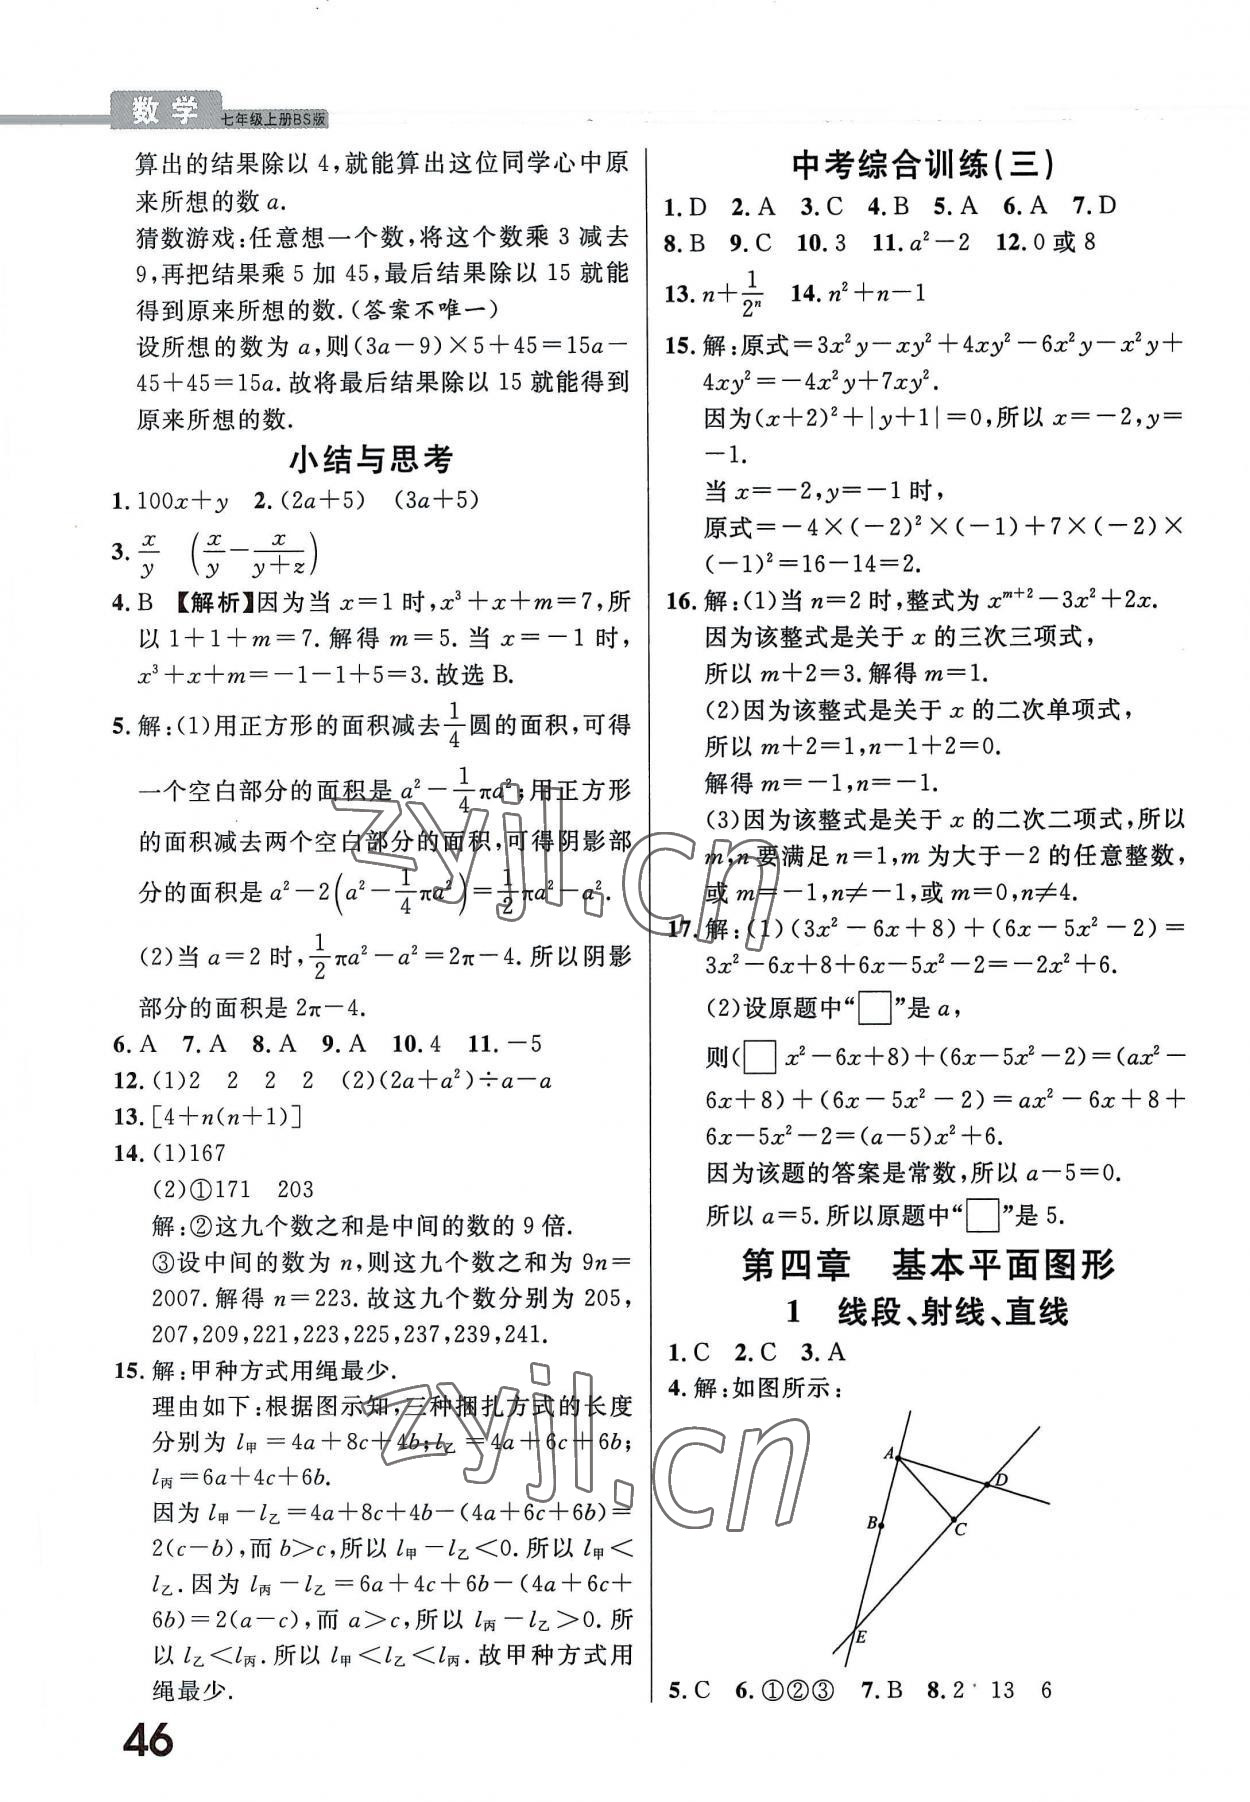 数学
七年级上册BS版
算出的结果除以 4,就能算出这位同学心中原
来所想的数 a.
猜数游戏:任意想一个数,将这个数乘 3 减去
9,再把结果乘 5 加 45,最后结果除以 15 就能
得到原来所想的数.(答案不唯一)
设所想的数为 a,则(3a-9)×5+45=15a-
45+45=15a.故将最后结果除以 15 就能得到
原来所想的数.
小结与思考
1. 100x+y 2. (2a+5) (3a+5)
3. x/y (x/y - x/(y+z))
4. B 【解析】因为当 x=1 时,x³+x+m=7,所
以 1+1+m=7. 解得 m=5. 当 x=-1 时,
x³+x+m=-1-1+5=3.故选 B.
5. 解:(1)用正方形的面积减去1/4圆的面积,可得
一个空白部分的面积是 a²-1/4πa²;用正方形
的面积减去两个空白部分的面积,可得阴影部
分的面积是 a²-2(a²-1/4πa²)=1/2πa²-a².
(2)当 a=2 时,1/2πa²-a²=2π-4. 所以阴影
部分的面积是 2π-4.
6. A 7. A 8. A 9. A 10. 4 11. -5
12. (1)2 2 2 2 (2)(2a+a²)÷a-a
13. [4+n(n+1)]
14. (1)167
(2)①171 203
解:②这九个数之和是中间的数的 9 倍.
③设中间的数为 n,则这九个数之和为 9n=
2007. 解得 n=223. 故这九个数分别为 205,
207,209,221,223,225,237,239,241.
15. 解:甲种方式用绳最少.
理由如下:根据图示知,三种捆扎方式的长度
分别为 l甲=4a+8c+4b;l乙=4a+6c+6b;
l丙=6a+4c+6b.
因为 l甲-l乙=4a+8c+4b-(4a+6c+6b)=
2(c-b),而 b>c,所以 l甲-l乙<0. 所以 l甲<
l乙. 因为 l丙-l乙=6a+4c+6b-(4a+6c+
6b)=2(a-c),而 a>c,所以 l丙-l乙>0. 所
以 l乙<l丙. 所以 l甲<l乙<l丙. 故甲种方式用
绳最少.
46
中考综合训练(三)
1. D 2. A 3. C 4. B 5. A 6. A 7. D
8. B 9. C 10. 3 11. a²-2 12. 0 或 8
13. n+1/2ⁿ 14. n²+n-1
15. 解:原式=3x²y-xy²+4xy²-6x²y-x²y+
4xy²=-4x²y+7xy².
因为(x+2)²+|y+1|=0,所以 x=-2,y=
-1.
当 x=-2,y=-1 时,
原式=-4×(-2)²×(-1)+7×(-2)×
(-1)²=16-14=2.
16. 解:(1)当 n=2 时,整式为 xᵐ⁺²-3x²+2x.
因为该整式是关于 x 的三次三项式,
所以 m+2=3. 解得 m=1.
(2)因为该整式是关于 x 的二次单项式,
所以 m+2=1,n-1+2=0.
解得 m=-1,n=-1.
(3)因为该整式是关于 x 的二次二项式,所以
m,n 要满足 n=1,m 为大于-2 的任意整数,
或 m=-1,n≠-1,或 m=0,n≠4.
17. 解:(1)(3x²-6x+8)+(6x-5x²-2)=
3x²-6x+8+6x-5x²-2=-2x²+6.
(2)设原题中“□”是 a,
则(□ x²-6x+8)+(6x-5x²-2)=(ax²-
6x+8)+(6x-5x²-2)=ax²-6x+8+
6x-5x²-2=(a-5)x²+6.
因为该题的答案是常数,所以 a-5=0.
所以 a=5. 所以原题中“□”是 5.
第四章 基本平面图形
1 线段、射线、直线
1. C 2. C 3. A
4. 解:如图所示:
A
D
B
C
E
5. C 6. ①②③ 7. B 8. 2 13 6
zyjl.cn
zyjl.cn